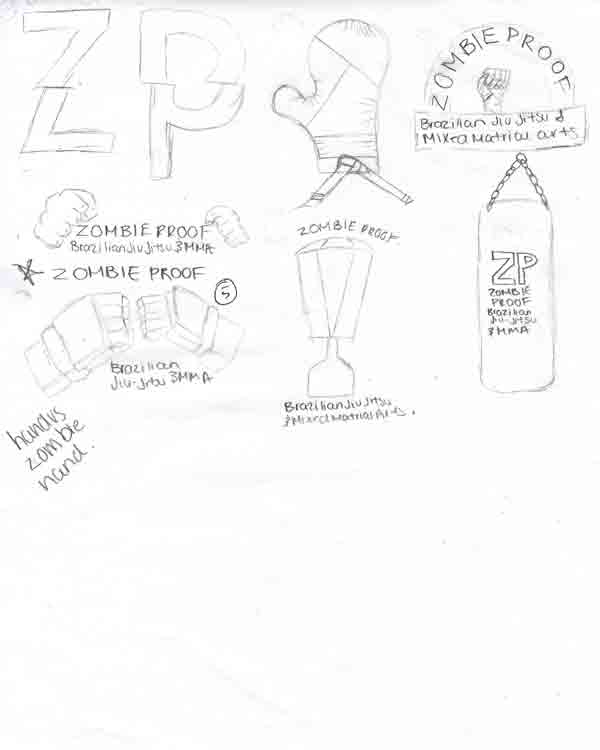 ZP
ZOMBIE PROOF
Brazilian Jiu Jitsu &
Mixed Matrial arts
ZOMBIE PROOF
Brazilian Jiu Jitsu & MMA
ZOMBIE PROOF
5
Brazilian
Jiu-Jitsu & MMA
hand vs
zombie
hand.
ZOMBIE PROOF
Brazilian Jiu Jitsu
& Mixed Matrial Arts.
ZP
ZOMBIE
PROOF
Brazilian
Jiu-Jitsu
& MMA